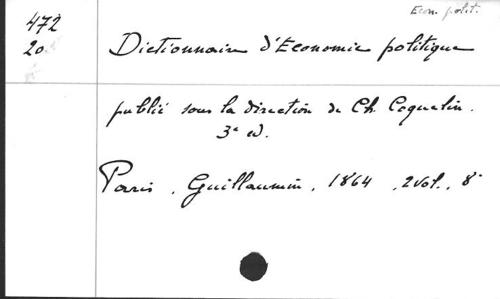 Econ. polit.
472
20
Dictionnaire d'Economie politique
publié sous la direction de Ch. Coquelin.
3e ed.
Paris, Guillaumin, 1864, 2 vol., 8°